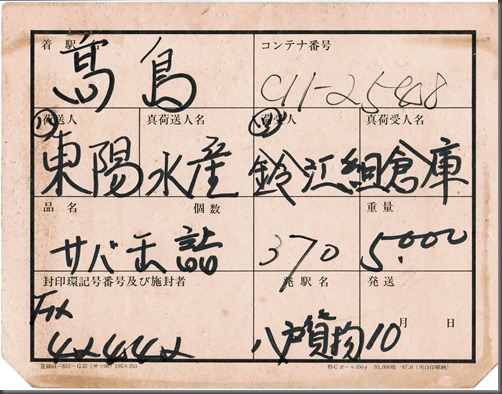 着駅名 コンテナ番号
高島 C11-25408
荷送人 真荷送人名 荷受人 真荷受人名
東陽水産 鈴江組倉庫
品名 個数 重量
サバ缶詰 370 5.000
封印環記号番号及び施封者 発駅名 発送
八戸貨物 10 月 日